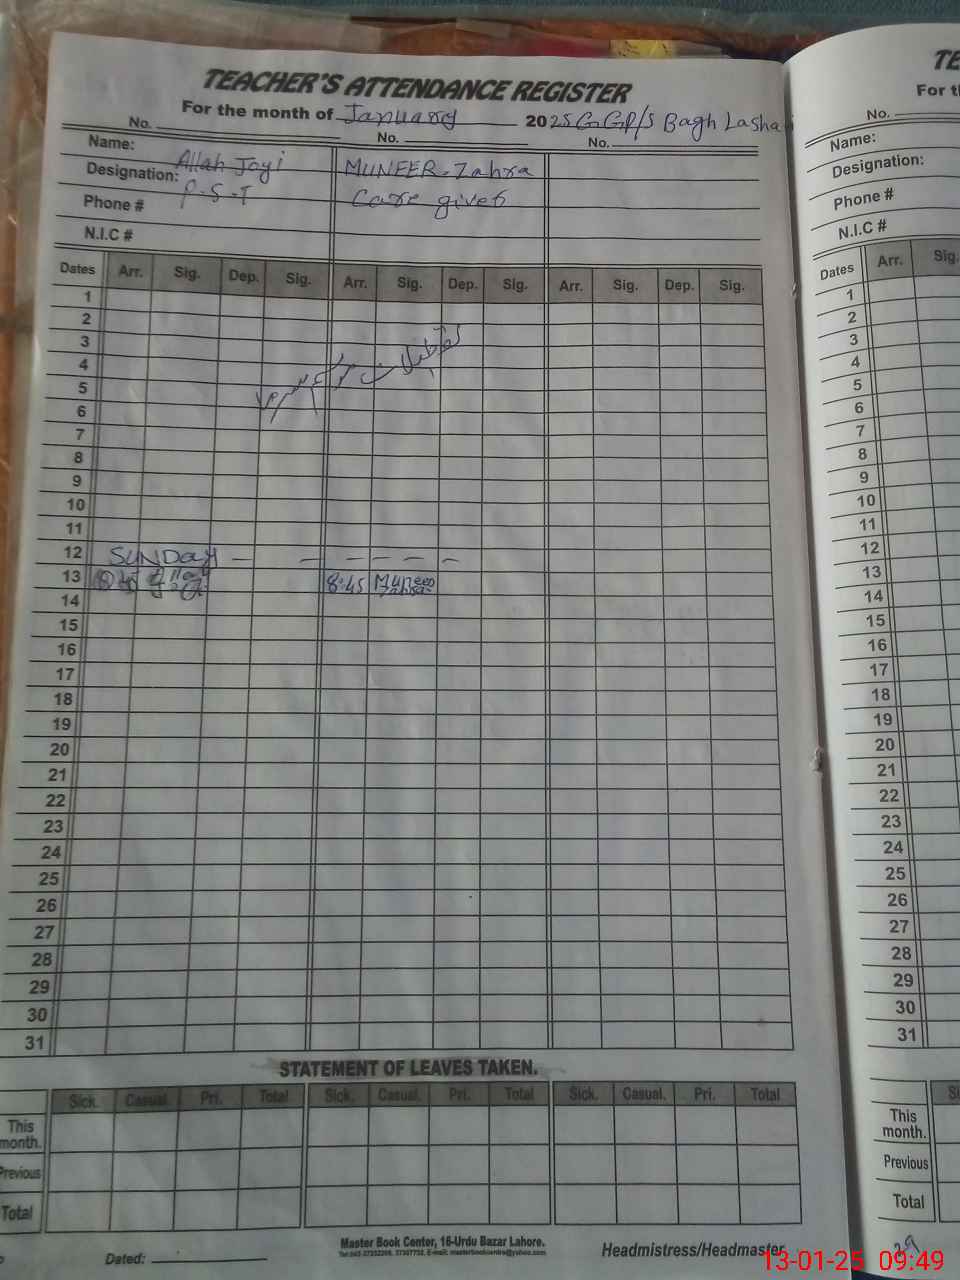 TEACHER'S ATTENDANCE REGISTER
For the month of January 2025 GGP/S Bagh Lasha
No. No. No.
Name: Allah Joyi MUNEER Zahra
Designation: P.S.T Care giver
Phone #
N.I.C #
Dates Arr. Sig. Dep. Sig. Arr. Sig. Dep. Sig. Arr. Sig. Dep. Sig.
1
2
3
تعطیلات موسم سرما
4
5
6
7
8
9
10
11
12 SUNDAY – – – – – –
13 8:45 Muneer Zahra
14
15
16
17
18
19
20
21
22
23
24
25
26
27
28
29
30
31
STATEMENT OF LEAVES TAKEN.
Sick. Casual. Pri. Total Sick. Casual. Pri. Total Sick. Casual. Pri. Total
This month.
Previous
Total
Master Book Center, 16-Urdu Bazar Lahore.
Dated: Headmistress/Headmaster
TE
For t
No.
Name:
Designation:
Phone #
N.I.C #
Dates Arr. Sig.
1
2
3
4
5
6
7
8
9
10
11
12
13
14
15
16
17
18
19
20
21
22
23
24
25
26
27
28
29
30
31
This month.
Previous
Total
29
13-01-25 09:49